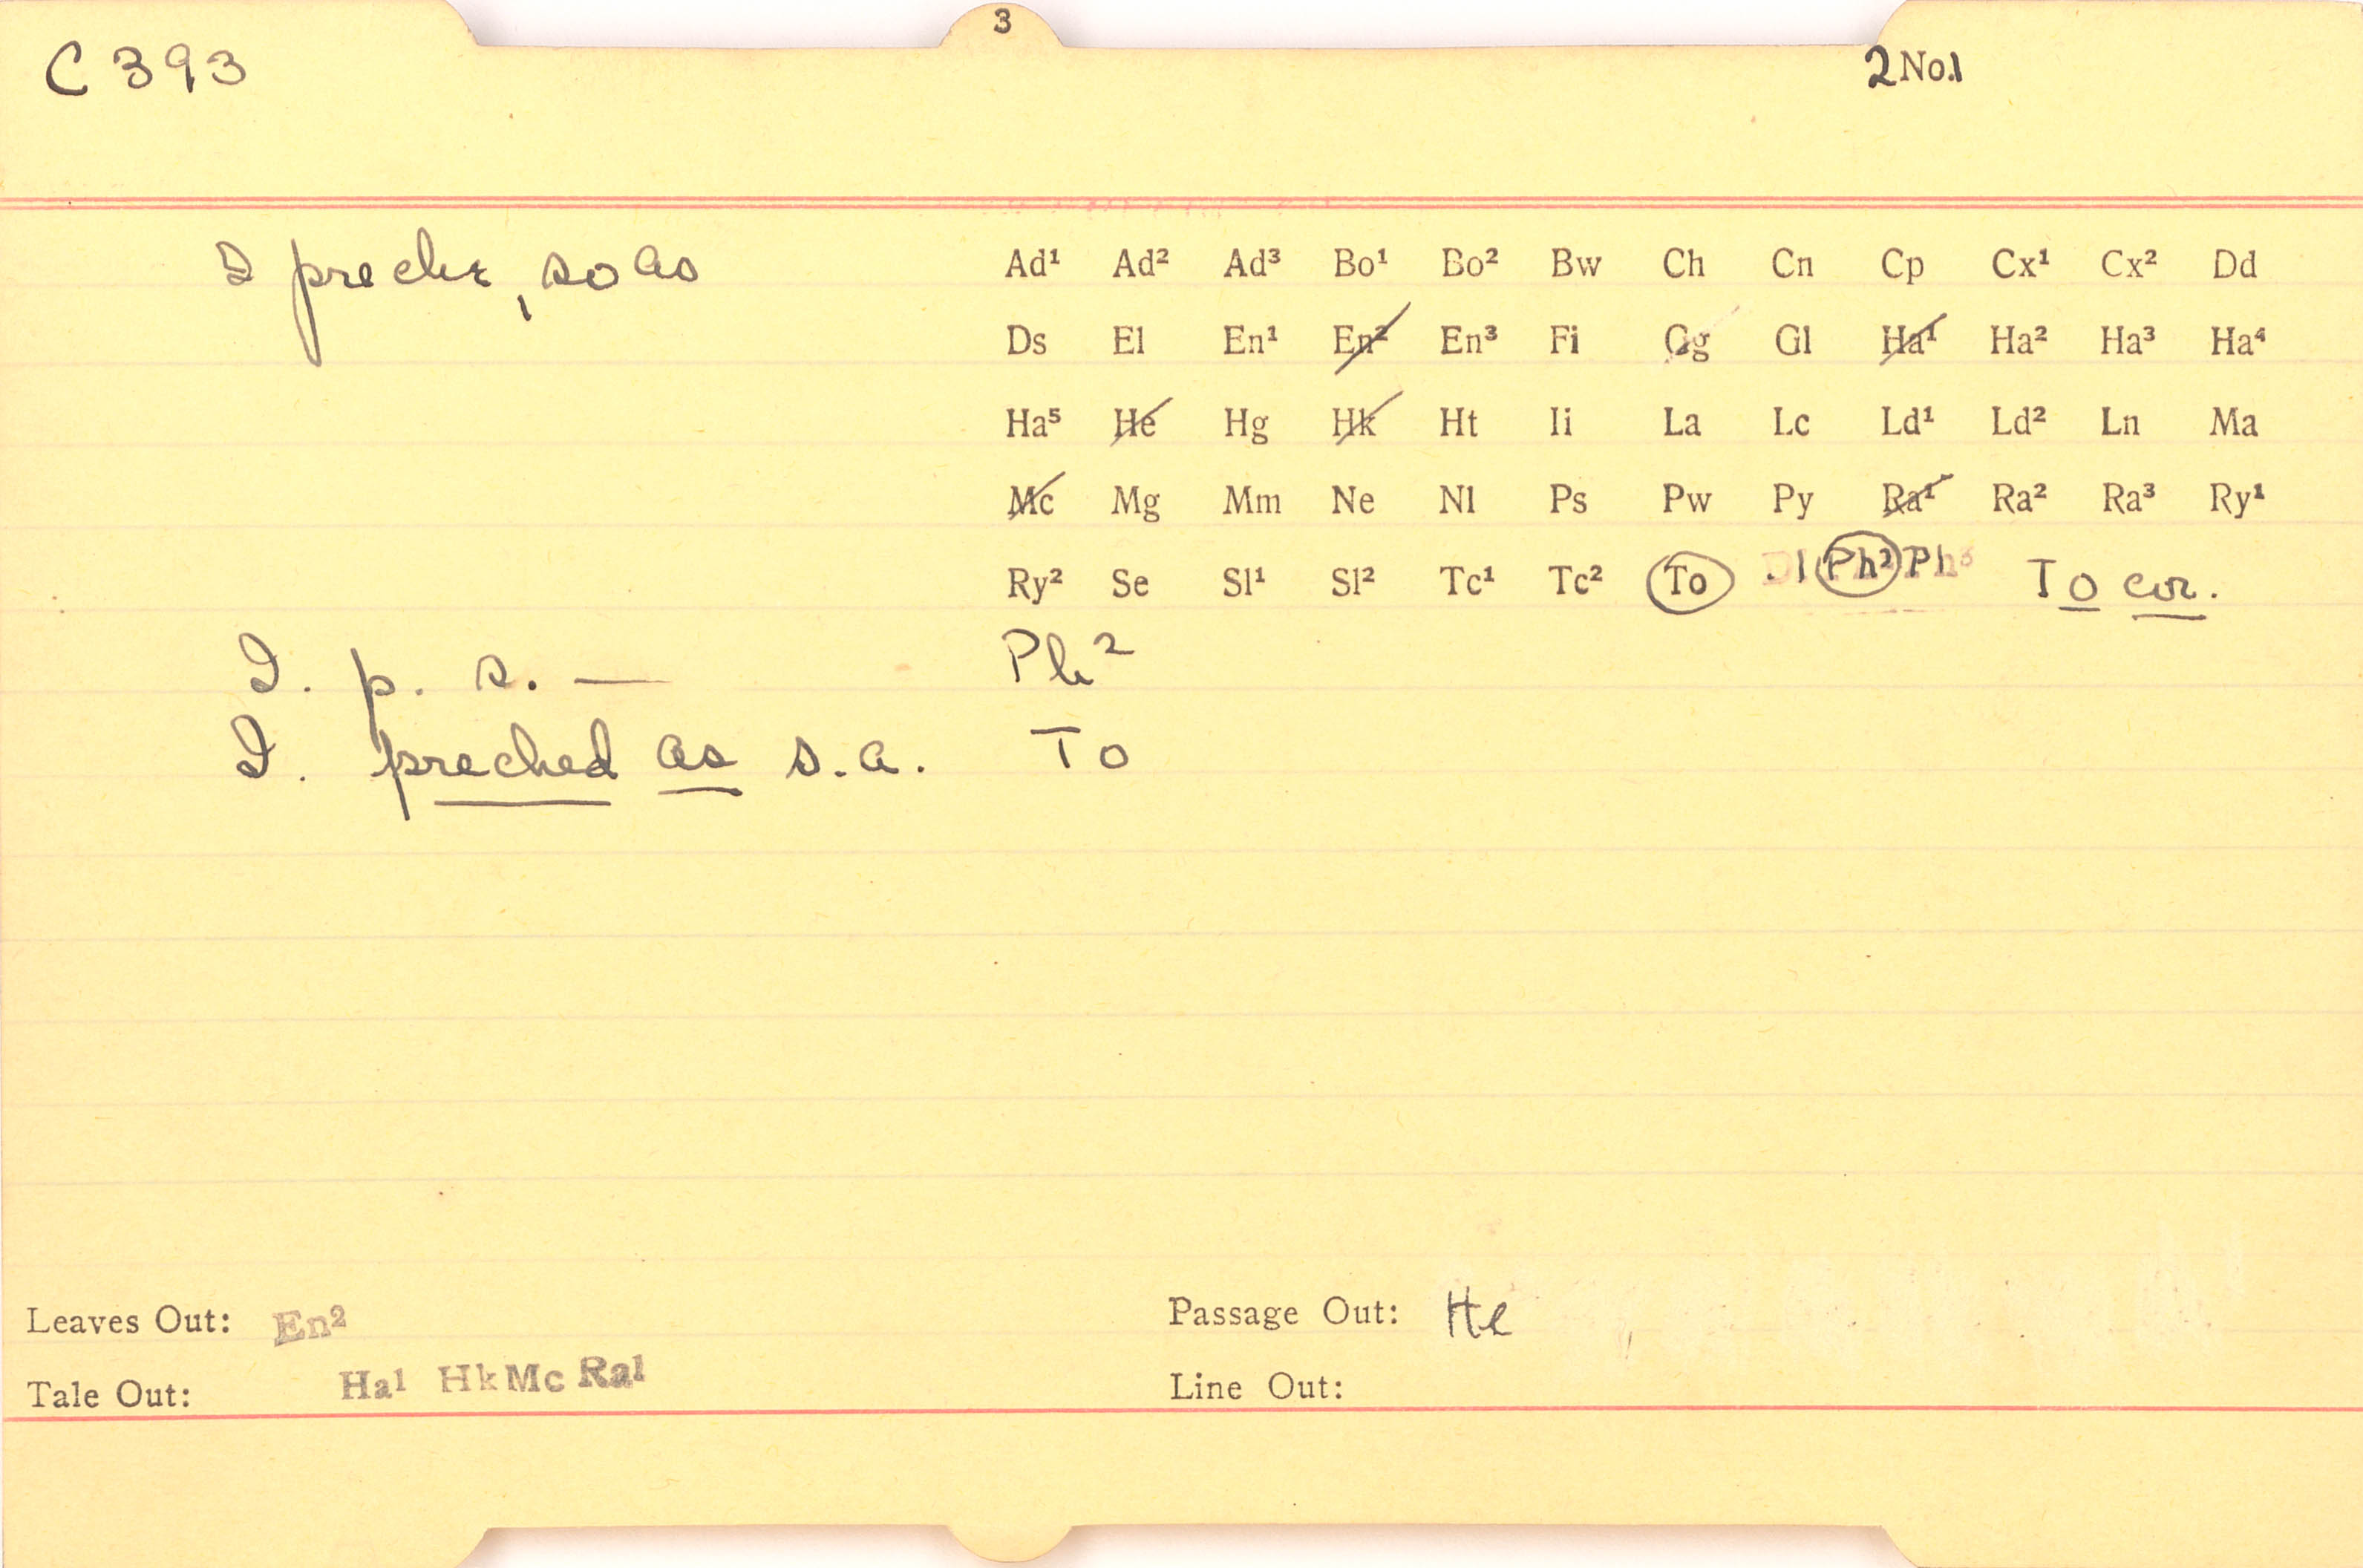 3
C 393 2No.1
I preche, so as Ad¹ Ad² Ad³ Bo¹ Bo² Bw Ch Cn Cp Cx¹ Cx² Dd
Ds El En¹ En² En³ Fi Gg Gl Ha¹ Ha² Ha³ Ha⁴
Ha⁵ He Hg Hk Ht Ii La Lc Ld¹ Ld² Ln Ma
Mc Mg Mm Ne Nl Ps Pw Py Ra¹ Ra² Ra³ Ry¹
Ry² Se Sl¹ Sl² Tc¹ Tc² To Dl Ph² Ph³ To cor.
I. p. s. — Ph²
I. preched as s.a. To
Leaves Out: En² Passage Out: He
Tale Out: Ha¹ Hk Mc Ra¹ Line Out: